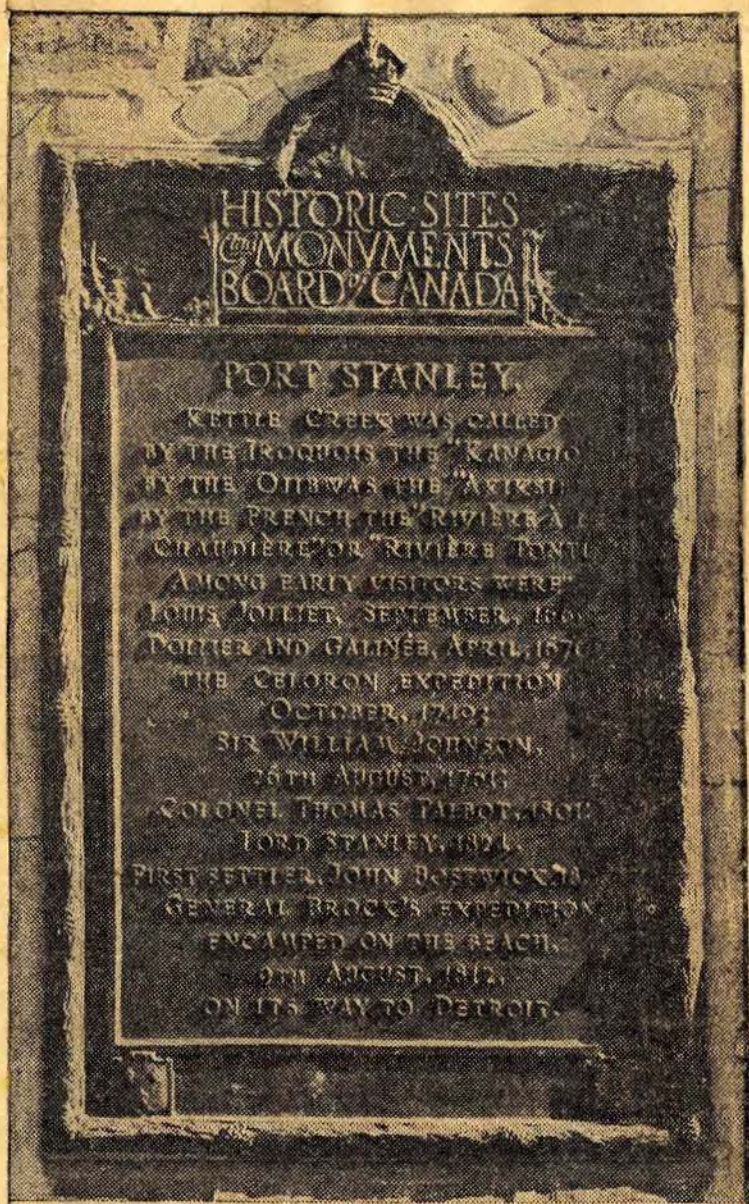 HISTORIC·SITES
and MONVMENTS
BOARD of CANADA
PORT STANLEY.
KETTLE CREEK WAS CALLED
BY THE IROQUOIS THE "KANAGIO
BY THE OJIBWAS THE "AKIKSI
BY THE FRENCH THE "RIVIÈRE À
CHAUDIÈRE" OR "RIVIÈRE TONTI
AMONG EARLY VISITORS WERE
LOUIS JOLLIET, SEPTEMBER, 166
DOLLIER AND GALINÉE, APRIL, 167
THE CELORON EXPEDITION
OCTOBER, 1749;
SIR WILLIAM JOHNSON,
26TH AUGUST, 1761;
COLONEL THOMAS TALBOT, 1801
LORD STANLEY, 1824.
FIRST SETTLER, JOHN BOSTWICK, 18
GENERAL BROCK'S EXPEDITION
ENCAMPED ON THE BEACH,
9TH AUGUST, 1812,
ON ITS WAY TO DETROIT.